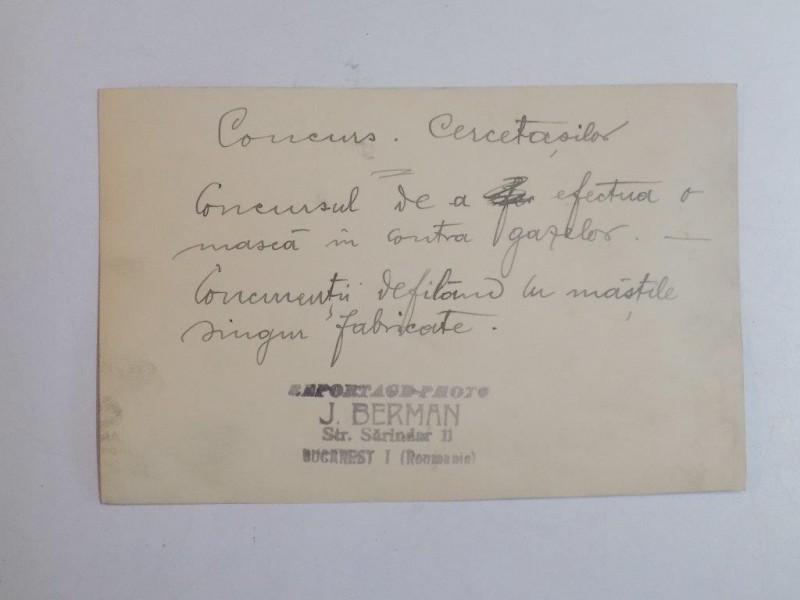 Concurs. Cercetașilor
Concursul de a efectua o
mască în contra gazelor. —
Concurenții defilând cu măștile
singur fabricate.
REPORTAGE-PHOTO
J. BERMAN
Str. Sărindar 11
BUCAREST I (Roumanie)